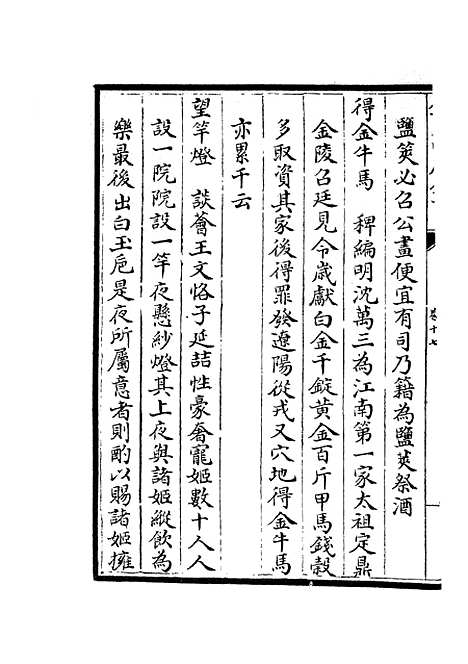 鹽筴必召公畫便宜有司乃籍為鹽筴祭酒
得金牛馬　稗編明沈萬三為江南第一家太祖定鼎
金陵召廷見令歲獻白金千錠黃金百斤甲馬錢穀
多取資其家後得罪發遼陽從戎又穴地得金牛馬
亦累千云
望竿燈　談薈王文恪子延喆性豪奢寵姬數十人人
設一院院設一竿夜懸紗燈其上夜與諸姬縱飲為
樂最後出白玉巵是夜所屬意者則酌以賜諸姬擁
卷十七